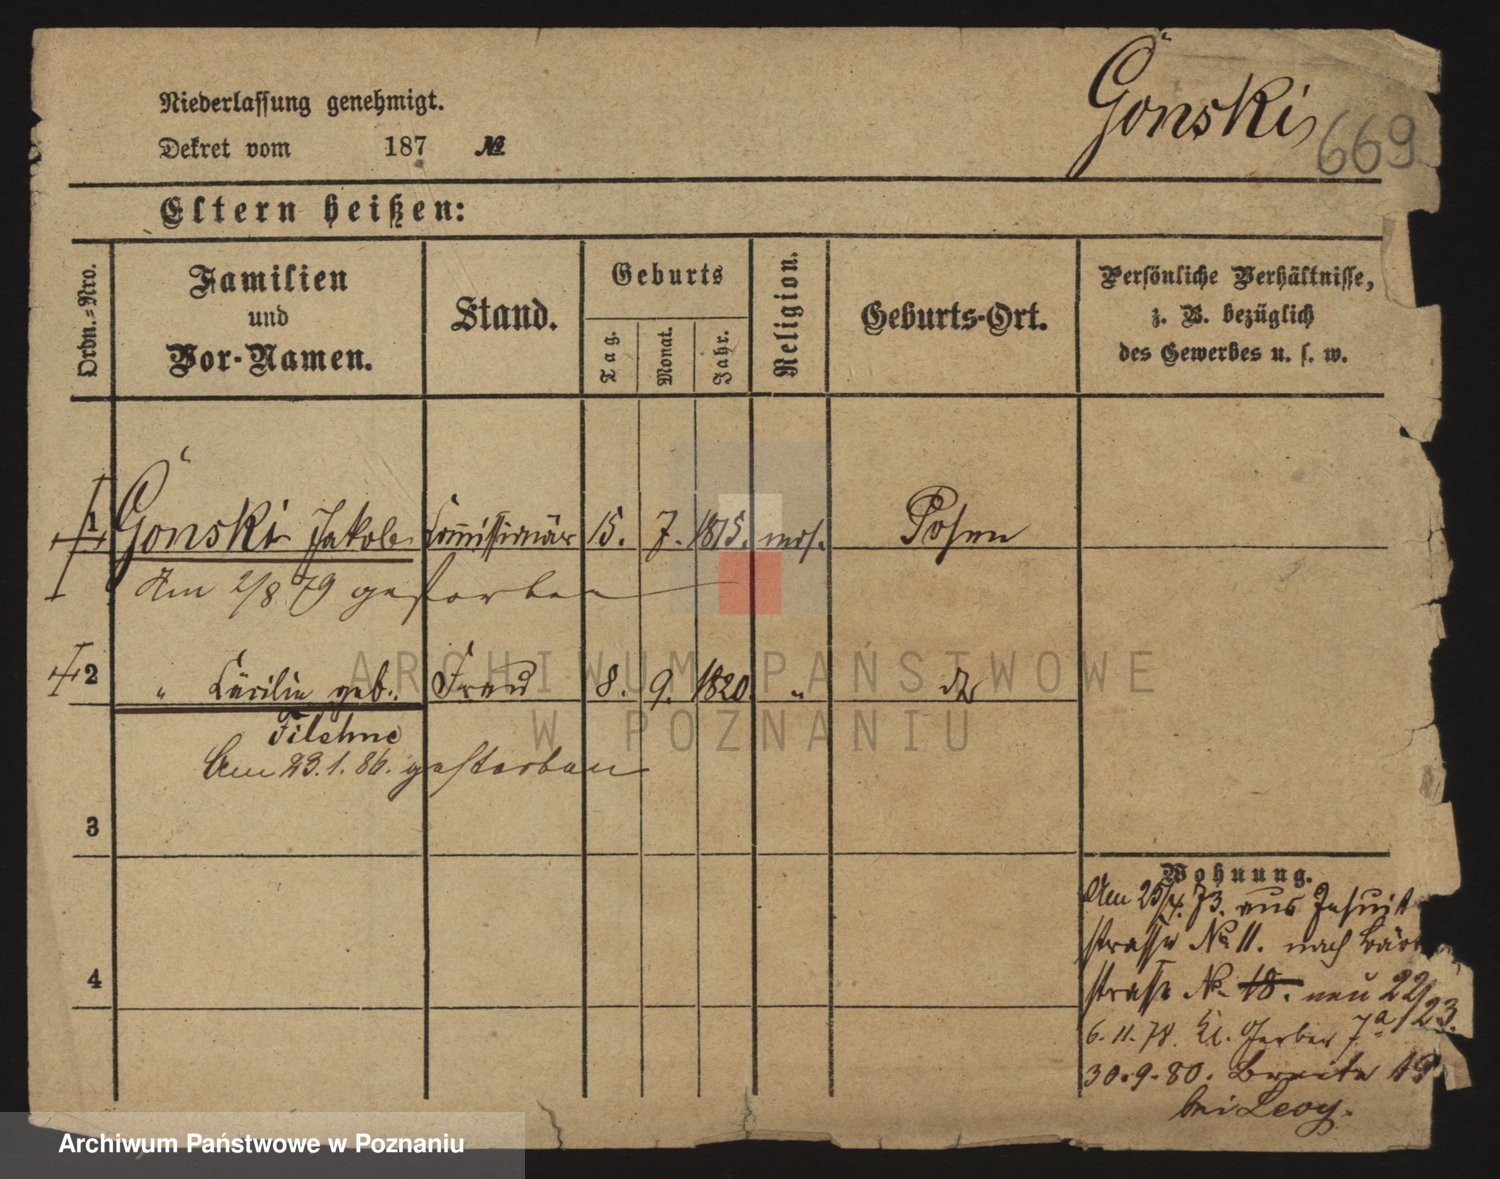 Niederlassung genehmigt.
Dekret vom 187 №
Gónski
669
Eltern heißen:
Ordn.-Nro.
Familien und Vor-Namen.
Stand.
Geburts
Tag.
Monat.
Jahr.
Religion.
Geburts-Ort.
Persönliche Verhältnisse,
z. B. bezüglich
des Gewerbes u. s. w.
1 Gónski Jakob Commissionär 15. 7. 1815. mos. Posen
Am 2/8 79 gestorben
2 " Cäcilie geb. Frau 8. 9. 1820. " do
Filehne
Am 23.1.86. gestorben
3
4
Wohnung.
Am 25/4. 73. aus Jesuit
strasse No 11. nach
strasse No 18. neu 22/23.
6.11.78. Kl. Gerber 7a
30.9.80. Breite 19
bei Levy.
ARCHIWUM PAŃSTWOWE
W POZNANIU
Archiwum Państwowe w Poznaniu